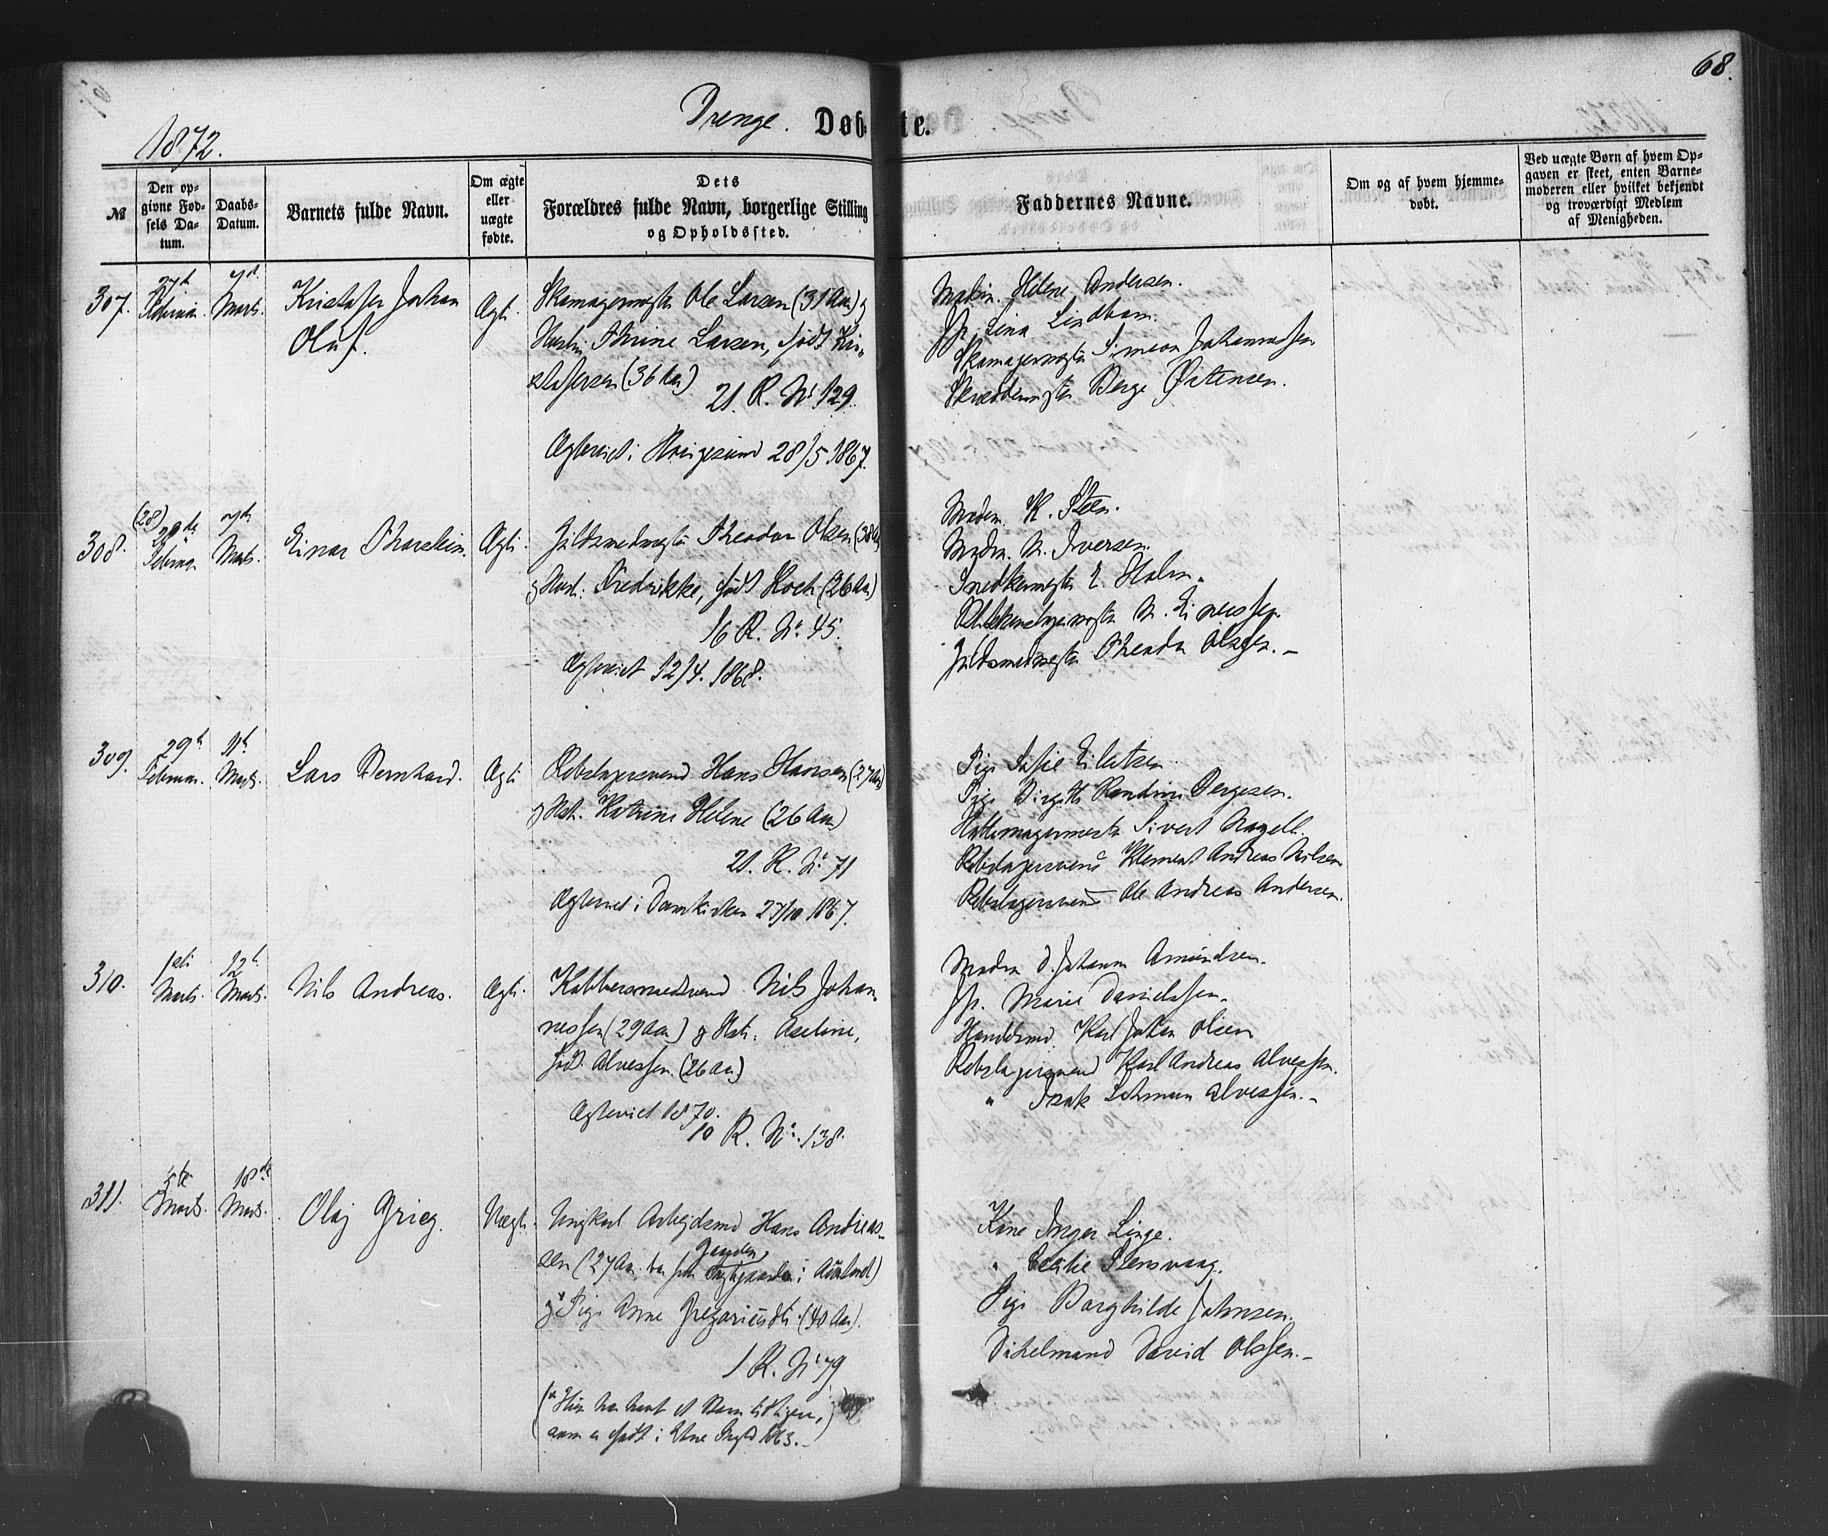 68.
1872.
Drenge. Døbte.
№
Den op-
givne Fød-
sels Da-
tum.
Daabs-
Datum.
Barnets fulde Navn.
Om ægte
eller
uægte
fødte.
Dets
Forældres fulde Navn, borgerlige Stilling
og Opholdssted.
Faddernes Navne.
Om og af hvem hjemme-
døbt.
Ved uægte Børn af hvem Op-
gaven er skeet, enten Barne-
moderen eller hvilket bekjendt
og troværdigt Medlem
af Menigheden.
307.
27de Februar.
7de Marts.
Kristofer Johan
Oluf.
Ægte.
Skomagermester Ole Larsen (31 Aar) og
Hustru Thrine Larsen, født Kri-
stofersen (36 Aar)
21. R. No 129.
Ægteviet i Haugesund 28/5 1867.
Madm. Helene Andersen.
Lina Lindbom.
Skomagermester Simeon Johannessen
Skræddermester Børge Østensen.
308.
(28) 29de Februar
7de Marts.
Einar Thorstein.
Ægte.
Guldsmedmester Theodor Olsen (38 Aar)
og Hust. Fredrikke, født Koch (26 Aar)
16 R. No. 45.
Ægteviet 12/4. 1868.
Madm. K. Steen.
Madm. N. Iversen.
Snedkermester E. Holm.
Guldsmedmester Theodor Olsen.
309.
29de Februar.
11te Marts.
Lars Bernhard.
Ægte
Rebslagersvend Hans Hansen (27 Aar)
og Hst. Katrine Helene (26 Aar)
21. R. No 71
Ægteviet i Domkirken 27/10 1867.
Pige Sofie Eilertsen
Pige Birgitte Rondine Børgesen.
Hattemagermester Sivert Nagell.
Rebslagersvend Klement Andreas Nilsen
Rebslagersvend Ole Andreas Andersen.
310.
1ste Marts.
12te Marts.
Nils Andreas.
Ægte.
Kobbersmedsvend Nils Johan-
nessen (29 Aar) og Hst. Axeline,
født Alvessen (26 Aar)
Ægteviet 1870.
10 R. No. 138.
Madm D. Johanna Amundsen.
Marie Danielssen.
Handelsmd. Karl Johan Olsen
Rebslagersvend Karl Andreas Alvessen.
" Isak Lohman Alvessen.
311.
Marts.
18de Marts.
Olaj Grieg.
Uægte.
Ungkarl Arbejdsmd Hans Andreas-
sen (27 Aar, fra Gaarden i Aurland)
og * Pige Anne Gregoriusdtr. (40 Aar).
1 R. No 79
(* Hun har havt et Barn tidligere,
som er født i Etne 1863.)
Kone Inger Linge.
" Cecilie Stensvaag.
Pige Borghilde Johnsen.
Dikelmand David Olssen.